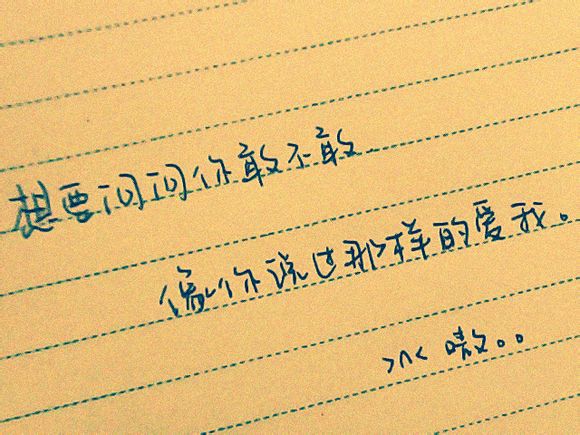 想要问问你敢不敢
像你说过那样的爱我。
>n< 嗷。。